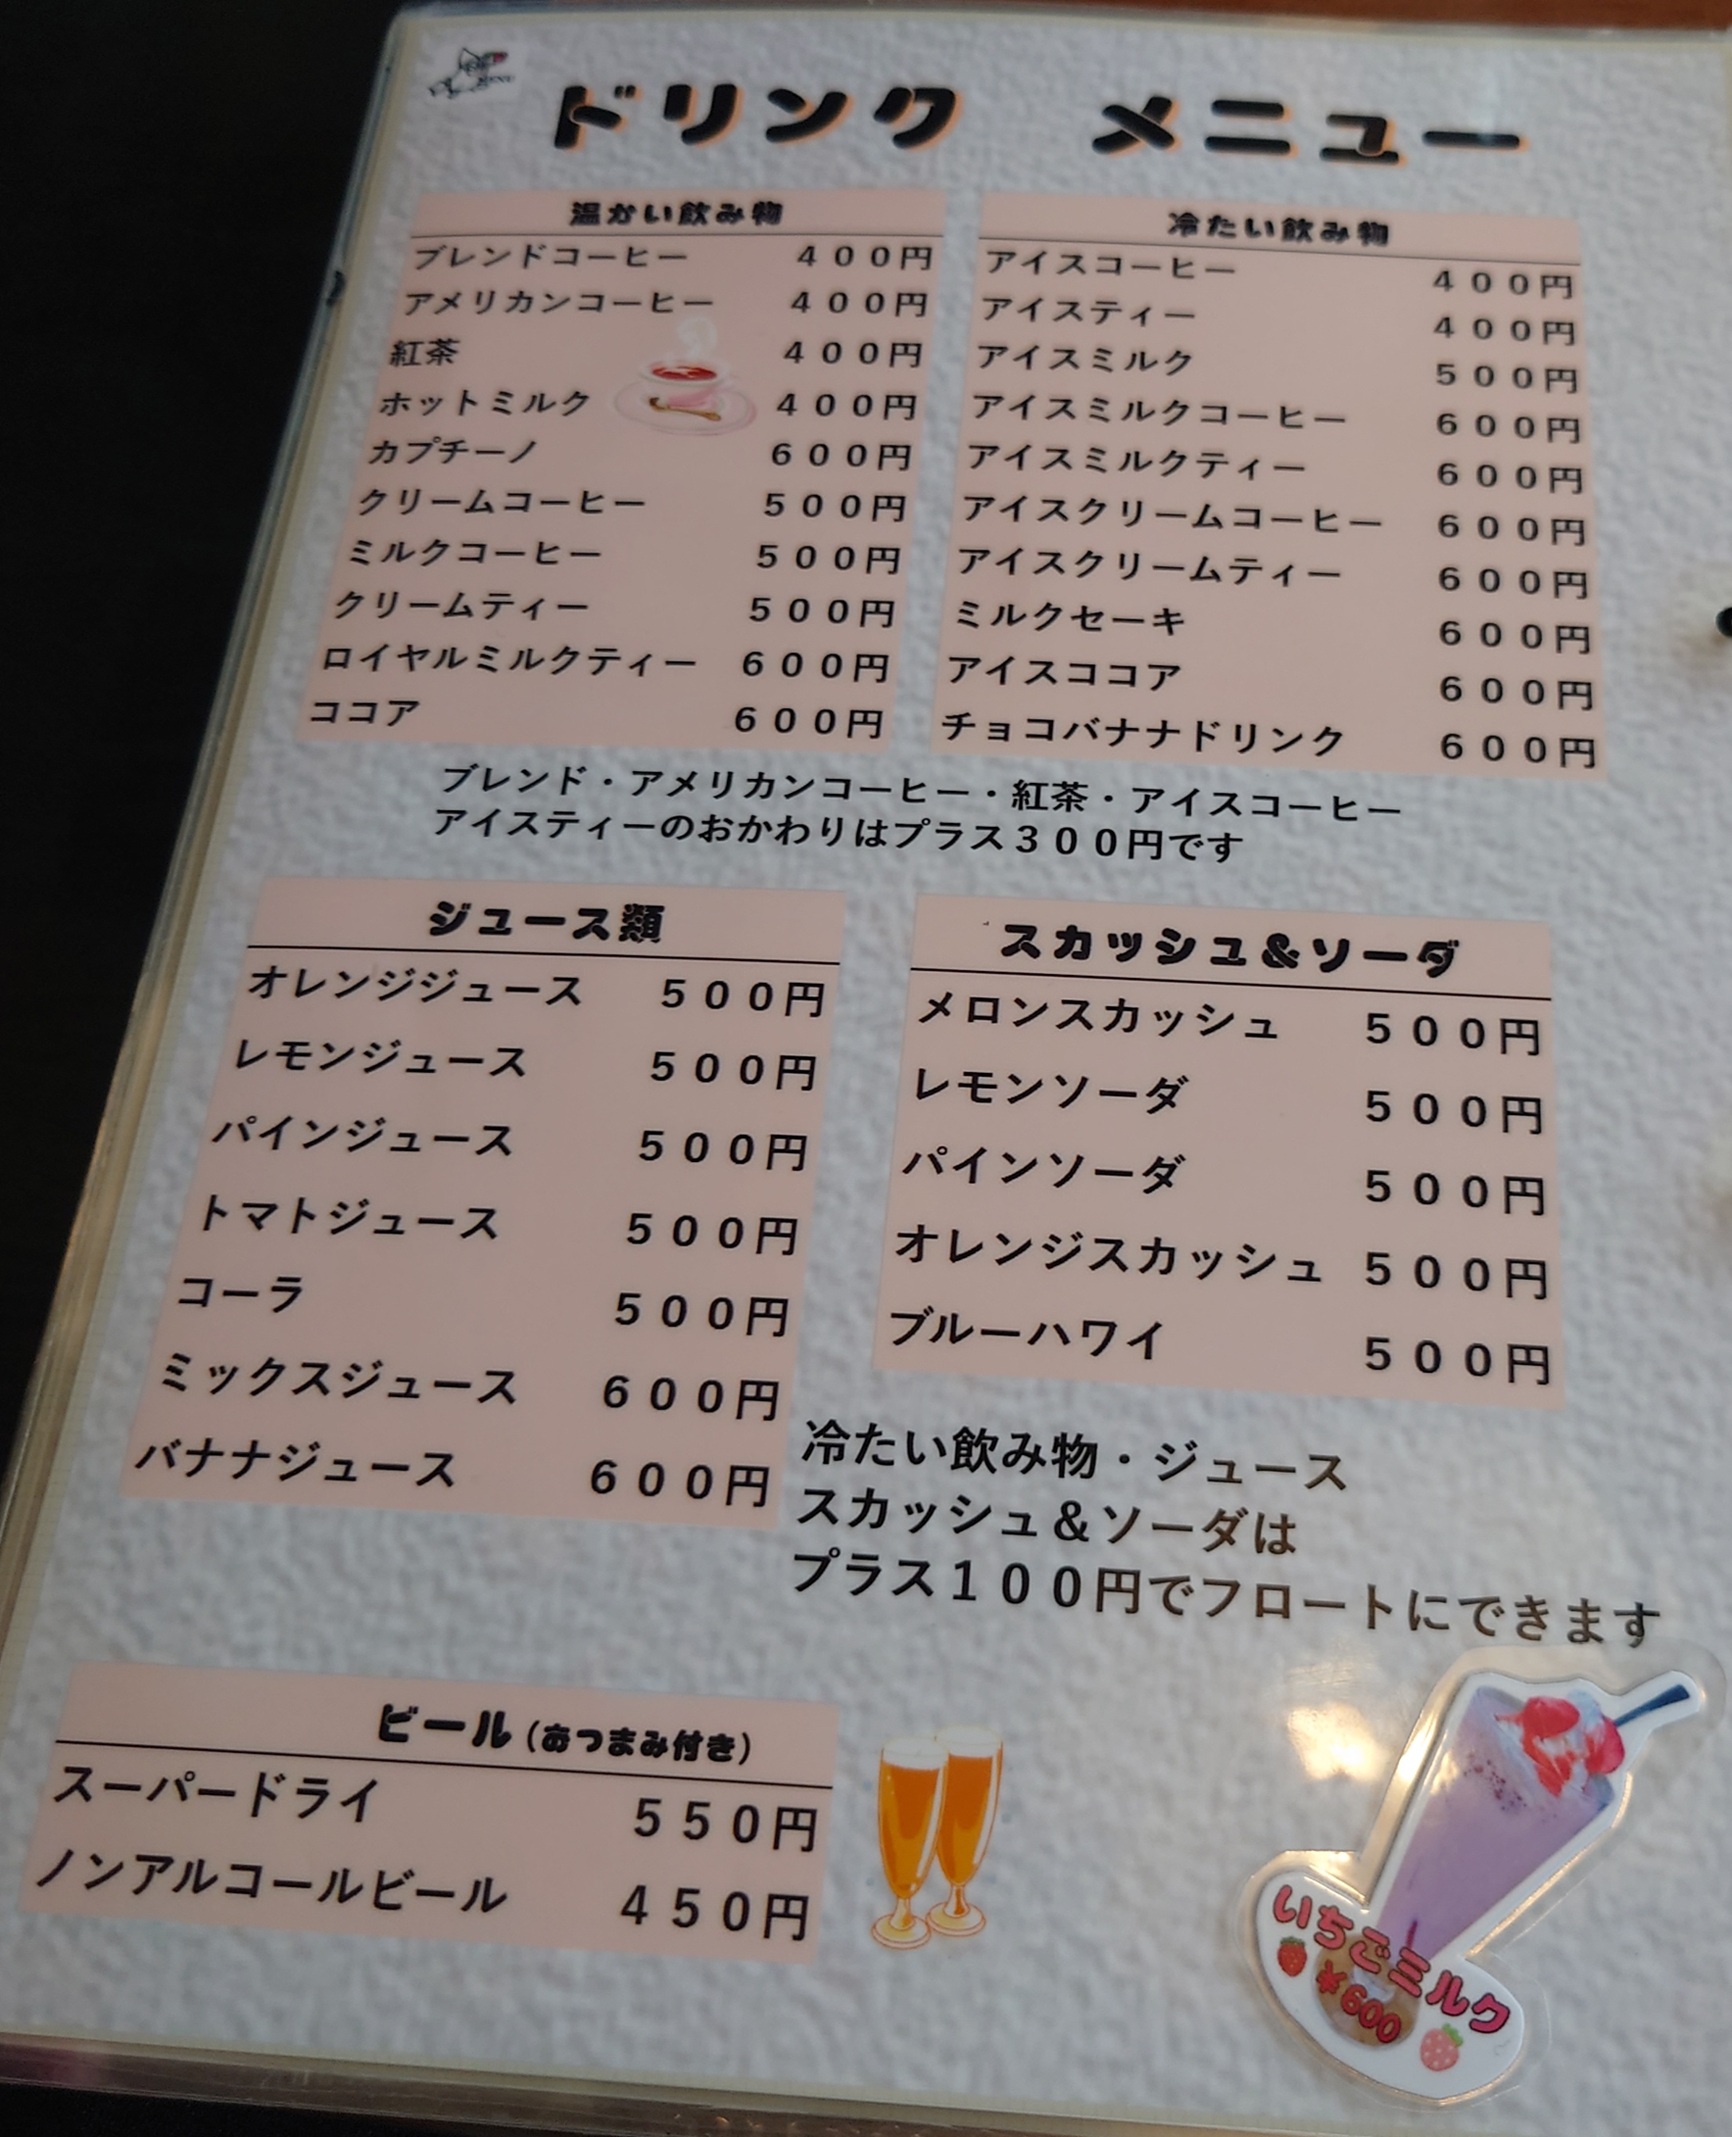 ドリンク メニュー
温かい飲み物
ブレンドコーヒー 400円
アメリカンコーヒー 400円
紅茶 400円
ホットミルク 400円
カプチーノ 600円
クリームコーヒー 500円
ミルクコーヒー 500円
クリームティー 500円
ロイヤルミルクティー 600円
ココア 600円
冷たい飲み物
アイスコーヒー 400円
アイスティー 400円
アイスミルク 500円
アイスミルクコーヒー 600円
アイスミルクティー 600円
アイスクリームコーヒー 600円
アイスクリームティー 600円
ミルクセーキ 600円
アイスココア 600円
チョコバナナドリンク 600円
ブレンド・アメリカンコーヒー・紅茶・アイスコーヒー
アイスティーのおかわりはプラス300円です
ジュース類
オレンジジュース 500円
レモンジュース 500円
パインジュース 500円
トマトジュース 500円
コーラ 500円
ミックスジュース 600円
バナナジュース 600円
スカッシュ&ソーダ
メロンスカッシュ 500円
レモンソーダ 500円
パインソーダ 500円
オレンジスカッシュ 500円
ブルーハワイ 500円
冷たい飲み物・ジュース
スカッシュ&ソーダは
プラス100円でフロートにできます
ビール(おつまみ付き)
スーパードライ 550円
ノンアルコールビール 450円
いちごミルク
¥600